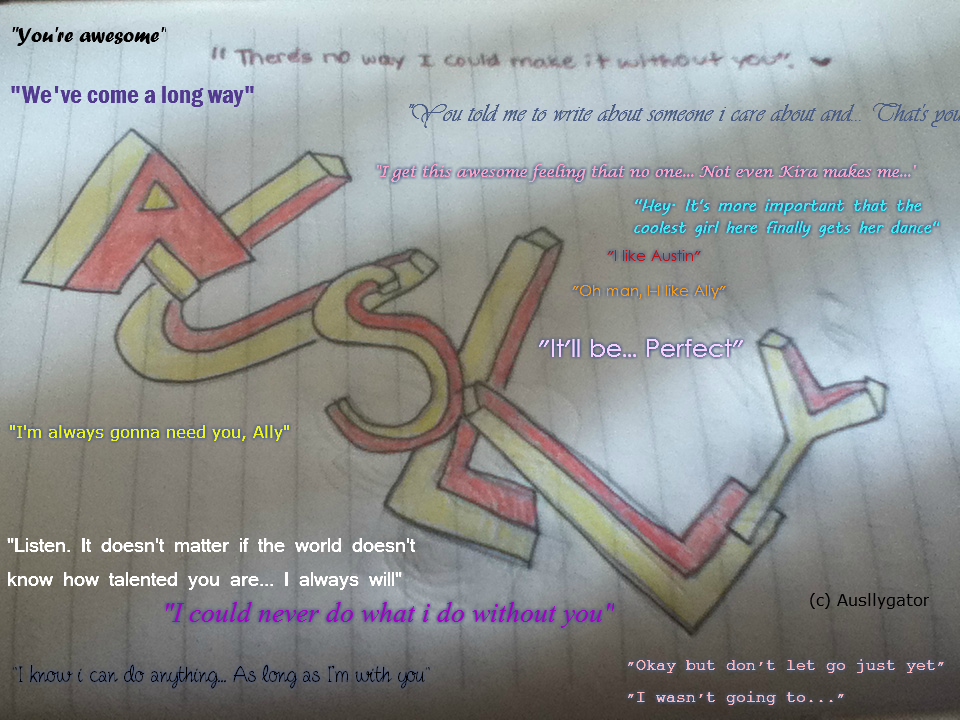 "You're awesome"
"There's no way I could make it without you".
"We've come a long way"
"You told me to write about someone i care about and... That's you
"I get this awesome feeling that no one... Not even Kira makes me...'
"Hey. It's more important that the
coolest girl here finally gets her dance"
"I like Austin"
"Oh man, I-I like Ally"
"It'll be... Perfect"
AUSLLY
"I'm always gonna need you, Ally"
"Listen. It doesn't matter if the world doesn't
know how talented you are... I always will"
"I could never do what i do without you"
(c) Ausllygator
"I know i can do anything... As long as I'm with you"
"Okay but don't let go just yet"
"I wasn't going to..."